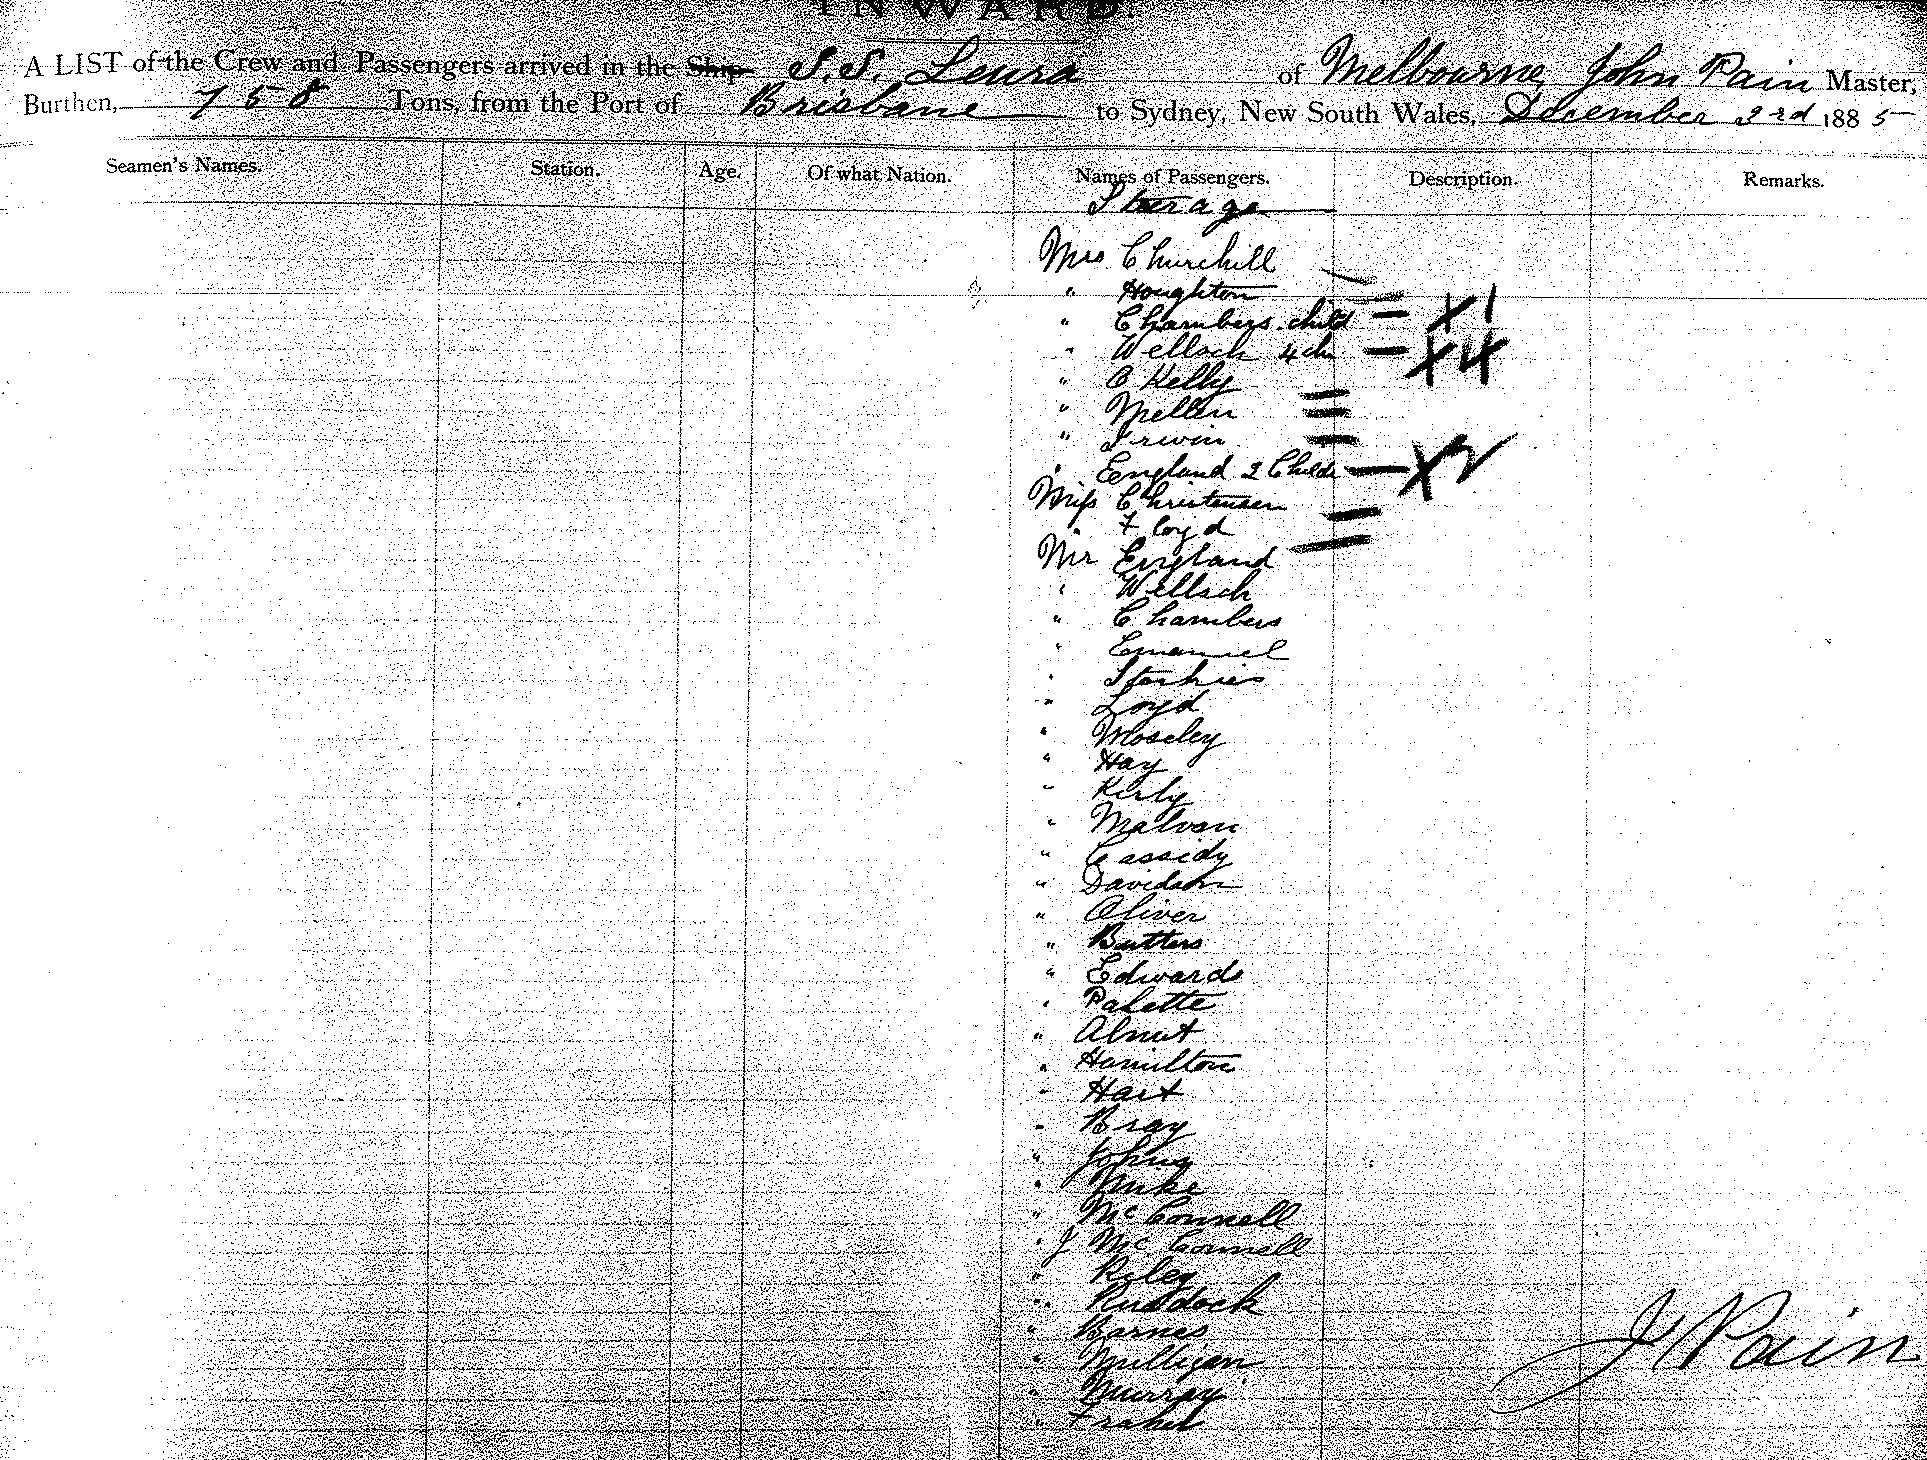 INWARD.
A LIST of the Crew and Passengers arrived in the Ship S.S. Leura of Melbourne, John Pain Master,
Burthen, 758 Tons, from the Port of Brisbane to Sydney, New South Wales, December 3rd 1885
Seamen's Names. Station. Age. Of what Nation. Names of Passengers. Description. Remarks.
Steerage
Mrs Churchill
" Houghton
" Chambers. child – X 1
" Wellsch 4 ch – X 4
" O Kelly
" Mellin
" Irwin
" England 2 Childr – X 2
Miss Christensen
" Floyd
Mr England
" Wellsch
" Chambers
" Emanuel
" Starkies
" Loyd
" Moseley
" Hay
" Kirby
" Malvan
" Cassidy
" Davidson
" Oliver
" Butters
" Edwards
" Palette
" Alnut
" Hamilton
" Hart
" Bray
" Johny
" Mike
" McConnell
" J McConnell
" Roley
" Ruddock
" Barnes
" Milligan
" Murray
"
J Pain